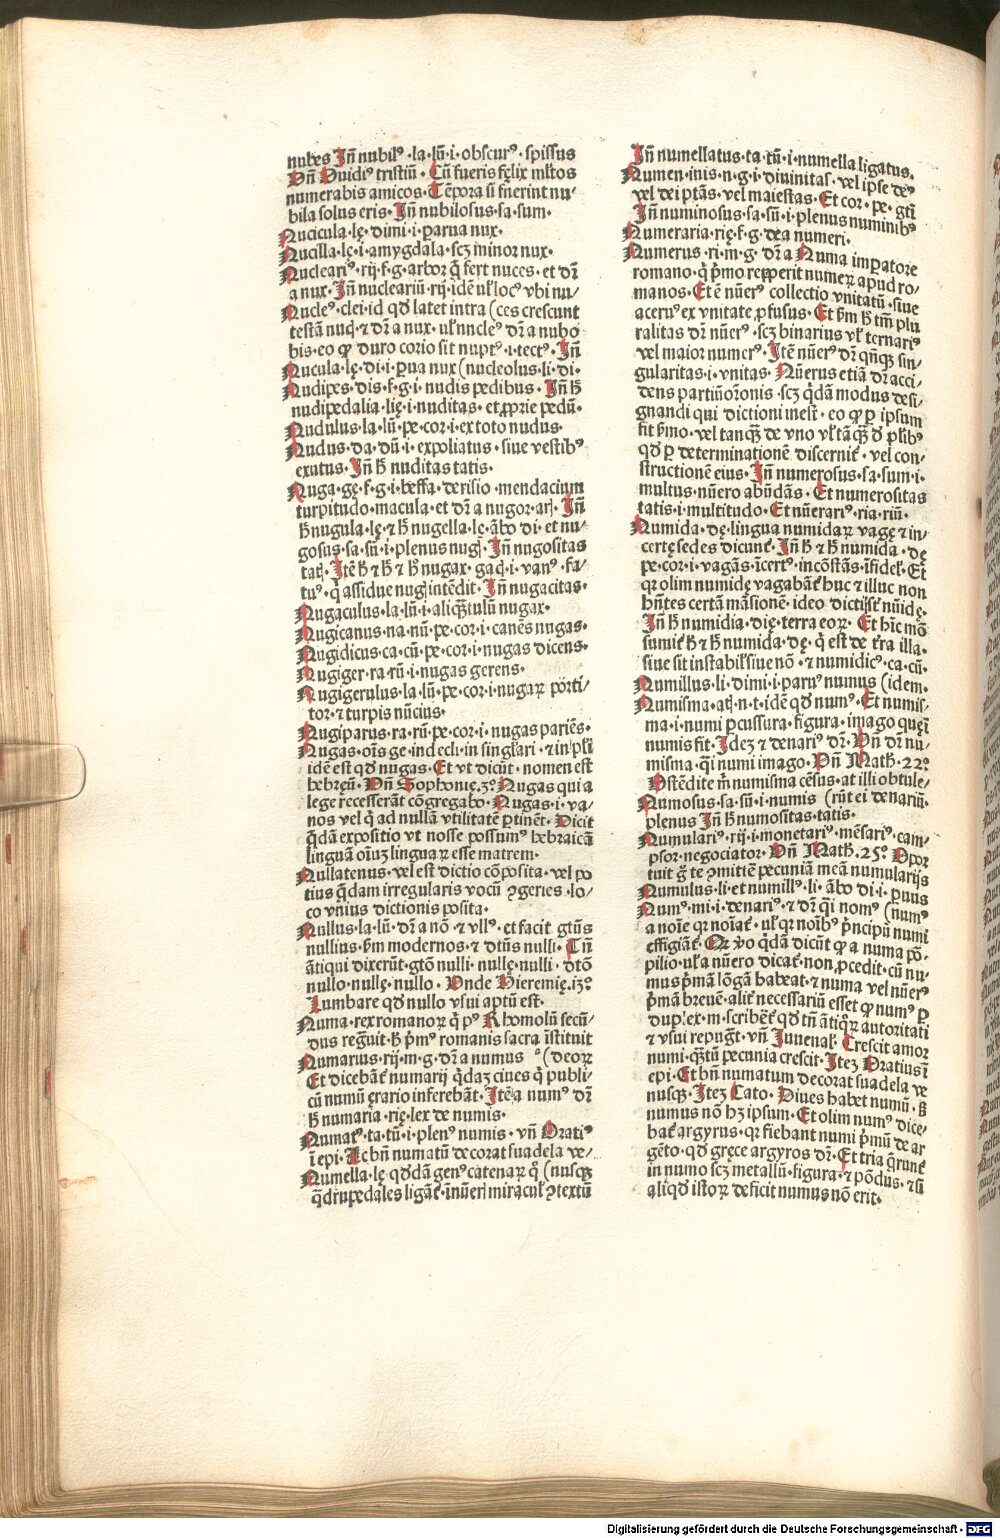 nubes Jn̄ nubilꝰ·la·lū·i·obscurꝰ·spissus
Vn̄ Ouidiꝰ tristiū·Cū fueris fęlix ml̄tos
numerabis amicos·Tēpora si fuerint nu⸗
bila solus eris·Jn̄ nubilosus·sa·sum·
Nucicula·lę·dimi·i·parua nux·
Nucilla·lę·i·amygdala·scꝫ minor nux·
Nucleariꝰ·rij·f·g·arbor q̄ fert nuces·et dr̄
a nux·Jn̄ nucleariū·rij·idē ul̓ locꝰ vbi nu⸗
Nucleꝰ·clei·id qd̓ latet intra (ces crescunt
testā nuꝗ·⁊ dr̄ a nux·ul̓ nucleꝰ dr̄ a nubo
bis·eo ꝙ duro corio sit nuptꝰ·i·tectꝰ·Jn̄
Nucula·lę·di·i·ꝑua nux (nucleolus·li·di·
Nudipes·dis·f·g·i·nudis pedibus·Jn̄ h̄
nudipedalia·lię·i·nuditas·et ꝓprie pedū·
Nudulus·la·lū·pe·cor·i·ex toto nudus·
Nudus·da·dū·i·expoliatus·siue vestibꝰ
exutus·Jn̄ h̄ nuditas tatis·
Nuga·gę·f·g·i·beffa·derisio·mendacium
turpitudo·macula·et dr̄ a nugor·aꝝ·Jn̄
h̄ nugula·lę·⁊ h̄ nugella·lę·ābo di·et nu⸗
gosus·sa·sū·i·plenus nugꝭ·Jn̄ nugositas
tatꝭ·Jtē h̄ ⁊ h̄ ⁊ h̄ nugax·gaꝗ·i·vanꝰ·fa⸗
tuꝰ·q̄ assidue nugꝭ intēdit·Jn̄ nugacitas·
Nugaculus·la·lū·i·aliqͣtulū nugax·
Nugicanus·na·nū·pe·cor·i·canēs nugas·
Nugidicus·ca·cū·pe·cor·i·nugas dicens·
Nugiger·ra·rū·i·nugas gerens·
Nugigerulus·la·lū·pe·cor·i·nugaꝝ pōrti⸗
tor·⁊ turpis nūcius·
Nugiparus·ra·rū·pe·cor·i·nugas pariēs·
Nugas·oīs ge·indecli·in singl̓ari·⁊ in pl̓i
idē est qd̓ nugas·Et vt dicūt·nomen est
hebręū·Vn̄ Sophonię·3ͦ·Nugas qui a
lege recesserāt cōgregabo·Nugas·i·va⸗
nos vel q̄ ad nullā vtilitatē ꝑtinēt·Dicit
q̄dā expositio vt nosse possumꝰ hebraicā
linguā oīuꝫ linguaꝝ esse matrem·
Nullatenus·vel est dictio cōposita·vel po
tius q̄dam irregularis vocū ꝯgeries·lo⸗
co vnius dictionis posita·
Nullus·la·lū·dr̄ a nō·⁊ vllꝰ·et facit gtn̄s
nullius·ẜm modernos·⁊ dtn̄s nulli·Cū
ātiqui dixerūt·gtō nulli·nullę·nulli·dtō
nullo·nullę·nullo·Vnde Hieremię.13ͦ
Lumbare qd̓ nullo vsui aptū est·
Numa·rex romanoꝝ q̄ pꝰ Rhomolū secū⸗
dus regͣuit·h̄ pͥmꝰ romanis sacra īstituit
Numarus·rij·m·g·dr̄ a numus (deoꝝ
Et dicebāt̓ numarij q̄daꝫ ciues q̄ publi⸗
cū numū ęrario inferebāt·Jtē a numꝰ dr̄
h̄ numaria·rię·lex de numis·
Numatꝰ·ta·tū·i·plenꝰ numis·vn̄ Oratiꝰ
ī epi·Ac bn̄ numatū decorat suadela ve⸗
Numella·lę·qd̓dā genꝰ catenaꝝ q̄ (nusqꝫ
q̄drupedales ligāt̓·īnūeri miracul̓ ꝯtextū
Jn̄ numellatus·ta·tū·i·numella ligatus·
Numen·inis·n·g·i·diuinitas·vel ipse deꝰ
vel dei ptās·vel maiestas·Et cor·pe·gtī
Jn̄ numinosus·sa·sū·i·plenus numinibꝰ
Numeraria·rię·f·g·dea numeri·
Numerus·ri·m·g·dr̄ a Numa imperatore
romano·q̄ pͥmo repperit numeꝝ apud ro⸗
manos·Et ē nūerꝰ collectio vnitatū·siue
aceruꝰ ex vnitate ꝓfusus·Et ẜm h̄ tm̄ plu
ralitas dr̄ nūerꝰ·scꝫ binarius vl̓ ternariꝰ
vel maior numerꝰ·Jtē nūerꝰ dr̄ qn̄qꝫ sin⸗
gularitas·i·vnitas·Nūerus etiā dr̄ acci⸗
dens partiū orōnis·scꝫ q̄dā modus desi⸗
gnandi qui dictioni inest·eo ꝙ ꝑ ipsum
fit pͥmo·vel tanqͣꝫ de vno vl̓ tāqͣꝫ d̓ pl̓ibꝰ
qd̓ ꝑ determinationē discernit̓·vel con⸗
structionē eius·Jn̄ numerosus·sa·sum·i·
multus·nūero abūdās·Et numerositas
tatis·i·multitudo·Et nūerariꝰ·ria·riū·
Numida·dę·lingua numidaꝝ vagę ⁊ in⸗
certę sedes dicunt̓·Jn̄ h̄ ⁊ h̄ numida·dę
pe·cor·i·vagās·īcertꝰ·incōstās·īfidel̓·Et
qꝛ olim numidę vagabāt̓ huc ⁊ illuc non
hn̄tes certā māsionē·ideo dicti st̄ nūidę·
Jn̄ h̄ numidia·dię·terra eoꝝ·Et hīc mō
sumit̓ h̄ ⁊ h̄ numida·dę·q̄ est de t̓ra illa·
siue sit instabil̓ siue nō·⁊ numidicꝰ·ca·cū·
Numillus·li·dimi·i·paruꝰ numus (idem·
Numisma·atꝭ·n·t·idē qd̓ numꝰ·Et numis⸗
ma·i·numi ꝑcussura·figura·imago quęī
numis fit·Jdeꝫ ⁊ denariꝰ dr̄·Vn̄ dr̄ nu⸗
misma·qͥ numi imago·Vn̄ Math·22ͦ
Ostēdite m̄ numisma cēsus·at illi obtule⸗
Numosus·sa·sū·i·numis (rūt ei denariū·
plenus Jn̄ h̄ numositas·tatis·
Numulariꝰ·rij·i·monetariꝰ·mēsariꝰ·cam⸗
psor·negociator·Vn̄ Math·25ͦ·Opor
tuit g̊ te ꝯmittē pecuniā meā numularijs
Numulus·li·et numillꝰ·li·ābo di·i·ꝑuus
Numꝰ·mi·i·denariꝰ·⁊ dr̄ qͥ nomꝰ (numꝰ
a noīe qꝛ noīat̓·ul̓ qꝛ noībꝰ pͥncipū numi
effigiāt̓·Qꝛ ꝟo q̄dā dicūt ꝙ a numa pō⸗
pilio·ul̓ a nūero dicat̓·non ꝓcedit·cū nu⸗
mus pͥmā lōgā habeat·⁊ numa vel nūerꝰ
pͥmā breuē·alit̓ necessariū esset ꝙ numꝰ ꝑ
dupl̓·ex·m·scribet̓ qd̓ tn̄ ātiqͥꝝ autoritati
⁊ vsui repugt̓·vn̄ Juuenal̓·Crescit amor
numi·qͣꝫtū pecunia crescit·Jteꝫ Oratius ī
epi·Et bn̄ numatum decorat suadela ve
nusqꝫ·Jteꝫ Cato·Diues habet numū·ß
numus nō hꝫ ipsum·Et olim numꝰ dice⸗
bat̓ argyrus·qꝛ fiebant numi pͥmū de ar
gēto·qd̓ gręce argyros dr̄·Et tria q̄runt̓
in numo scꝫ metallū·figura·⁊ pōdus·⁊ si
aliqd̓ istoꝝ deficit numus nō erit·
Digitalisierung gefördert durch die Deutsche Forschungsgemeinschaft - DFG